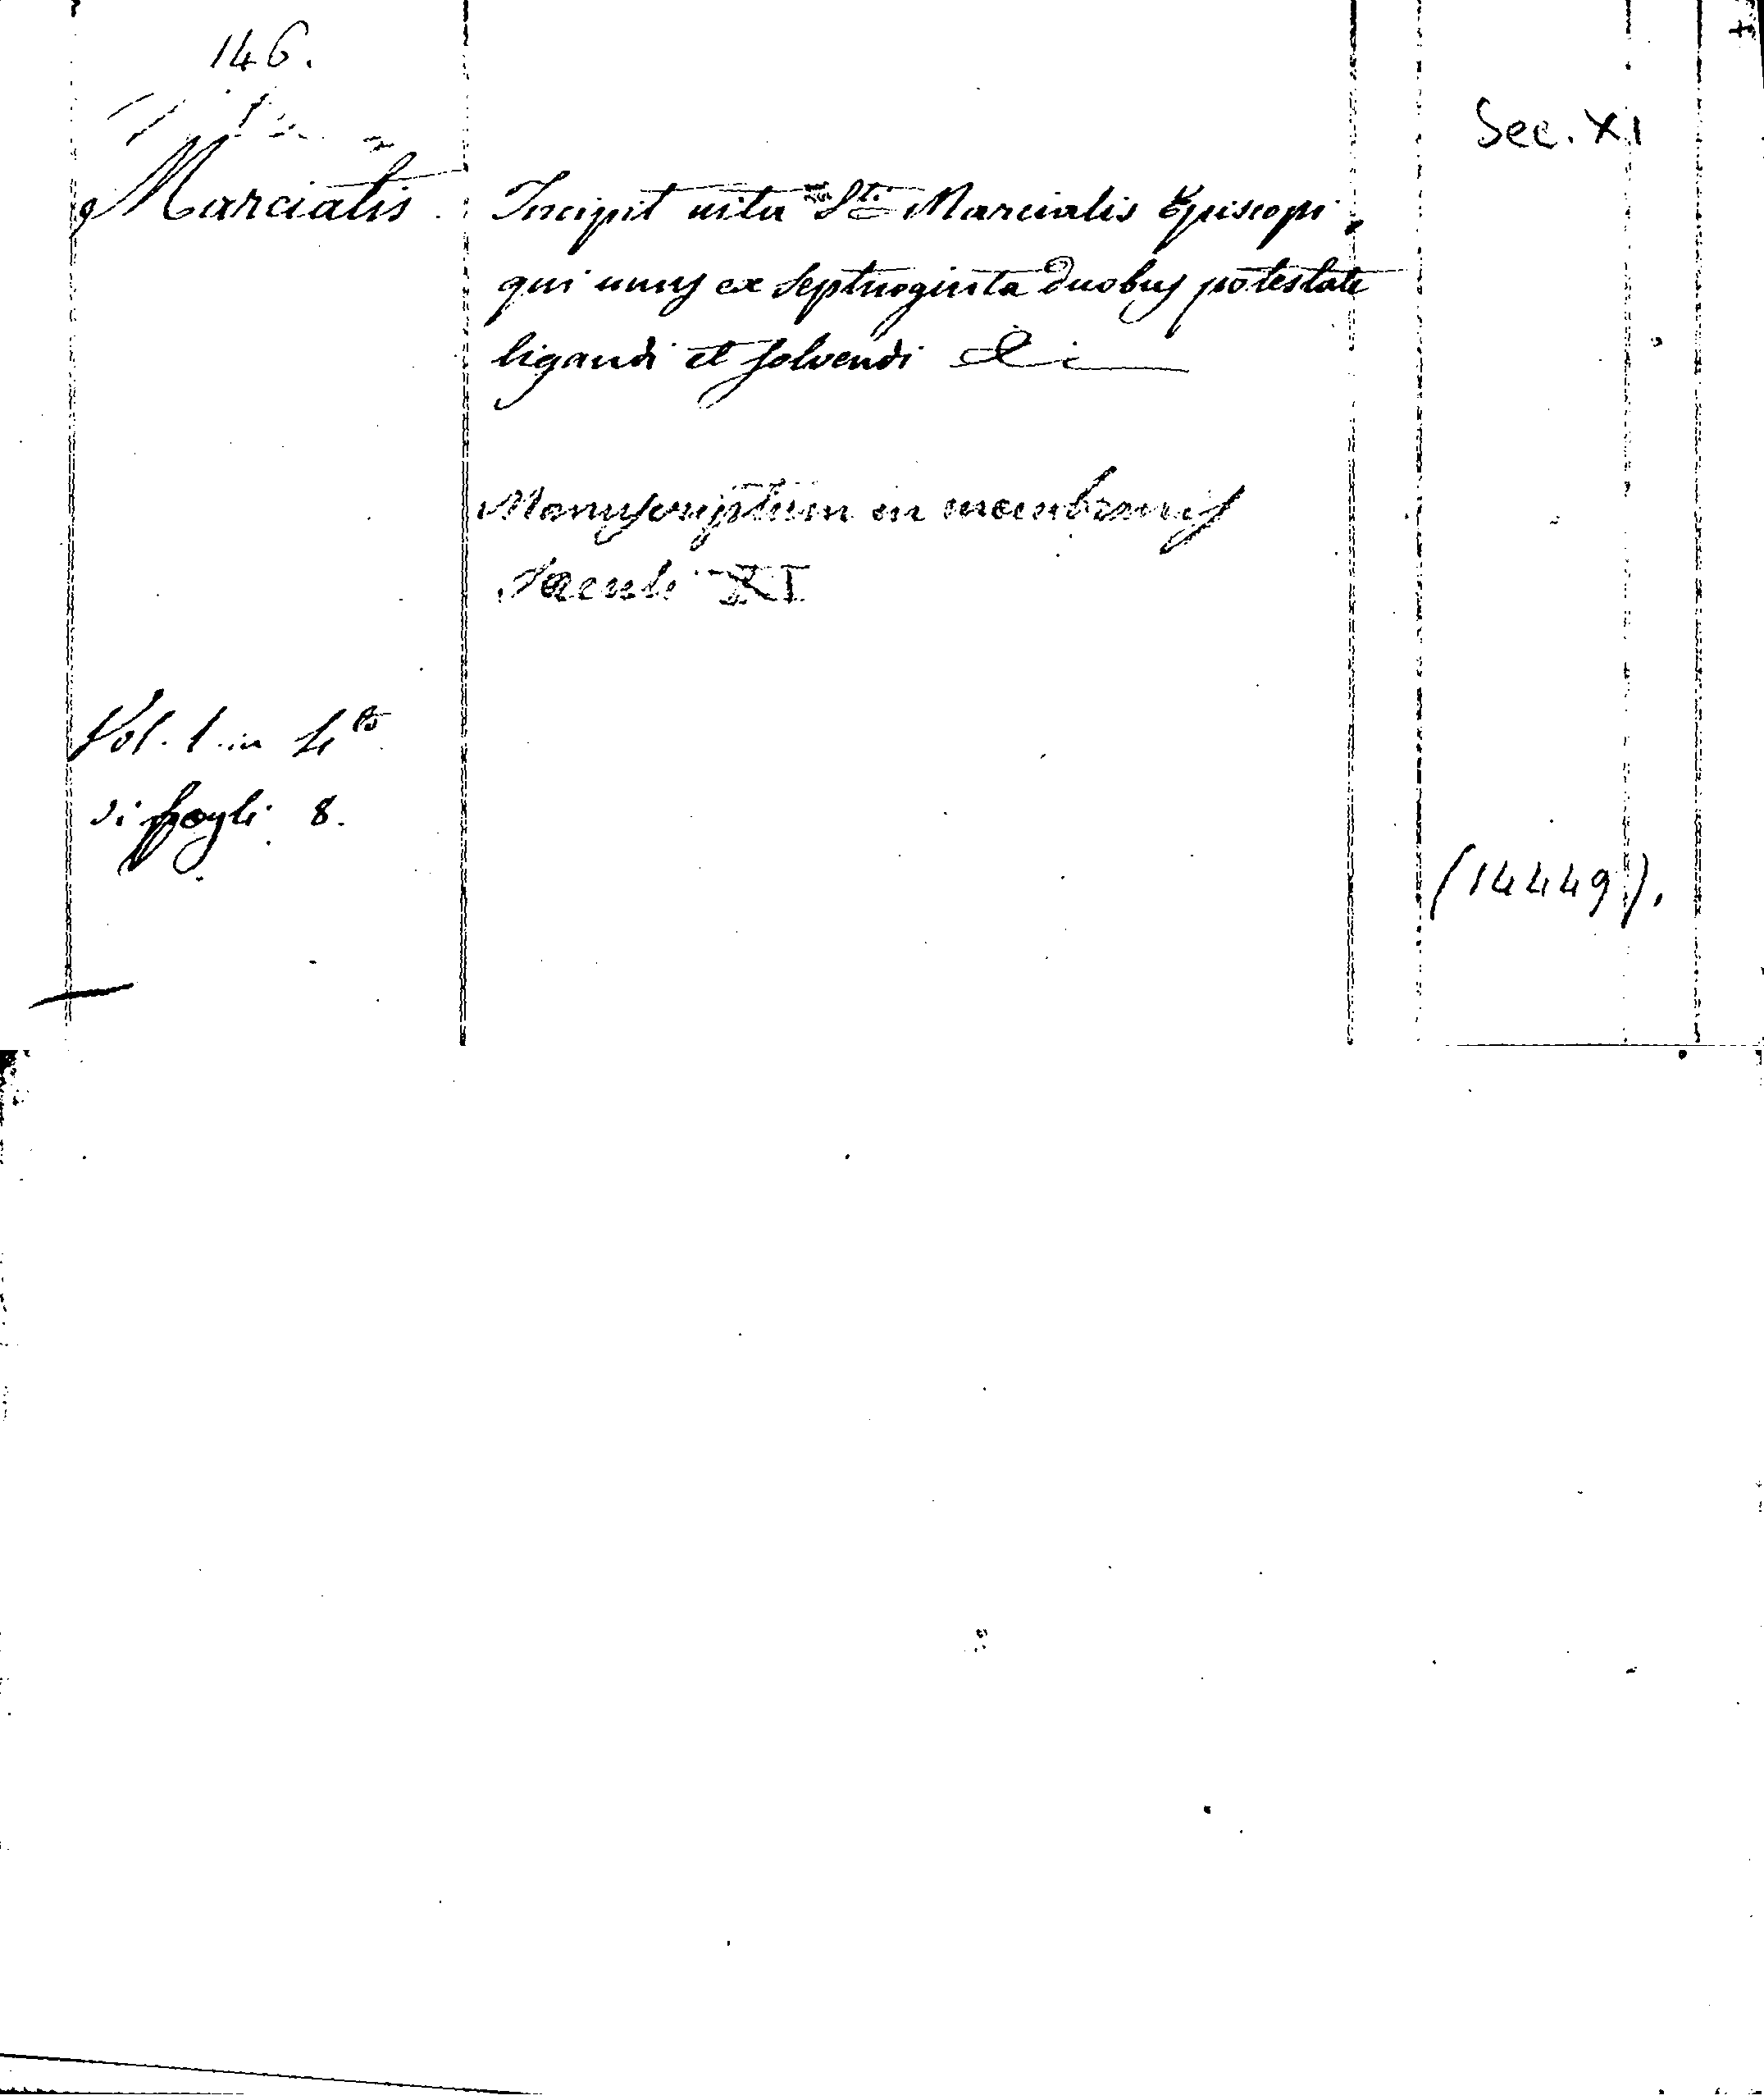 146.
Sec. XI
Marcialis
Incipit vita Sti Marcialis Episcopi,
qui unus ex septuoginta duobus potestate
ligandi et solvendi &
Manuscriptum in membranis
Saeculi XI
Vol. 1 in 4to
di fogli 8.
(14449).